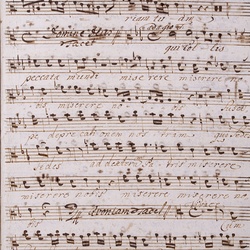 riam tu am
Domine Deus Adagio
Tacet qui tol lis
peccata mundi mise rere miserere no
bis miserere no bis sus
pe depre cati onem nos tram qui
sedes ad dextera Pa tris miserere
miserere nobis miserere miserere no
bis Quoniam tacet Cum